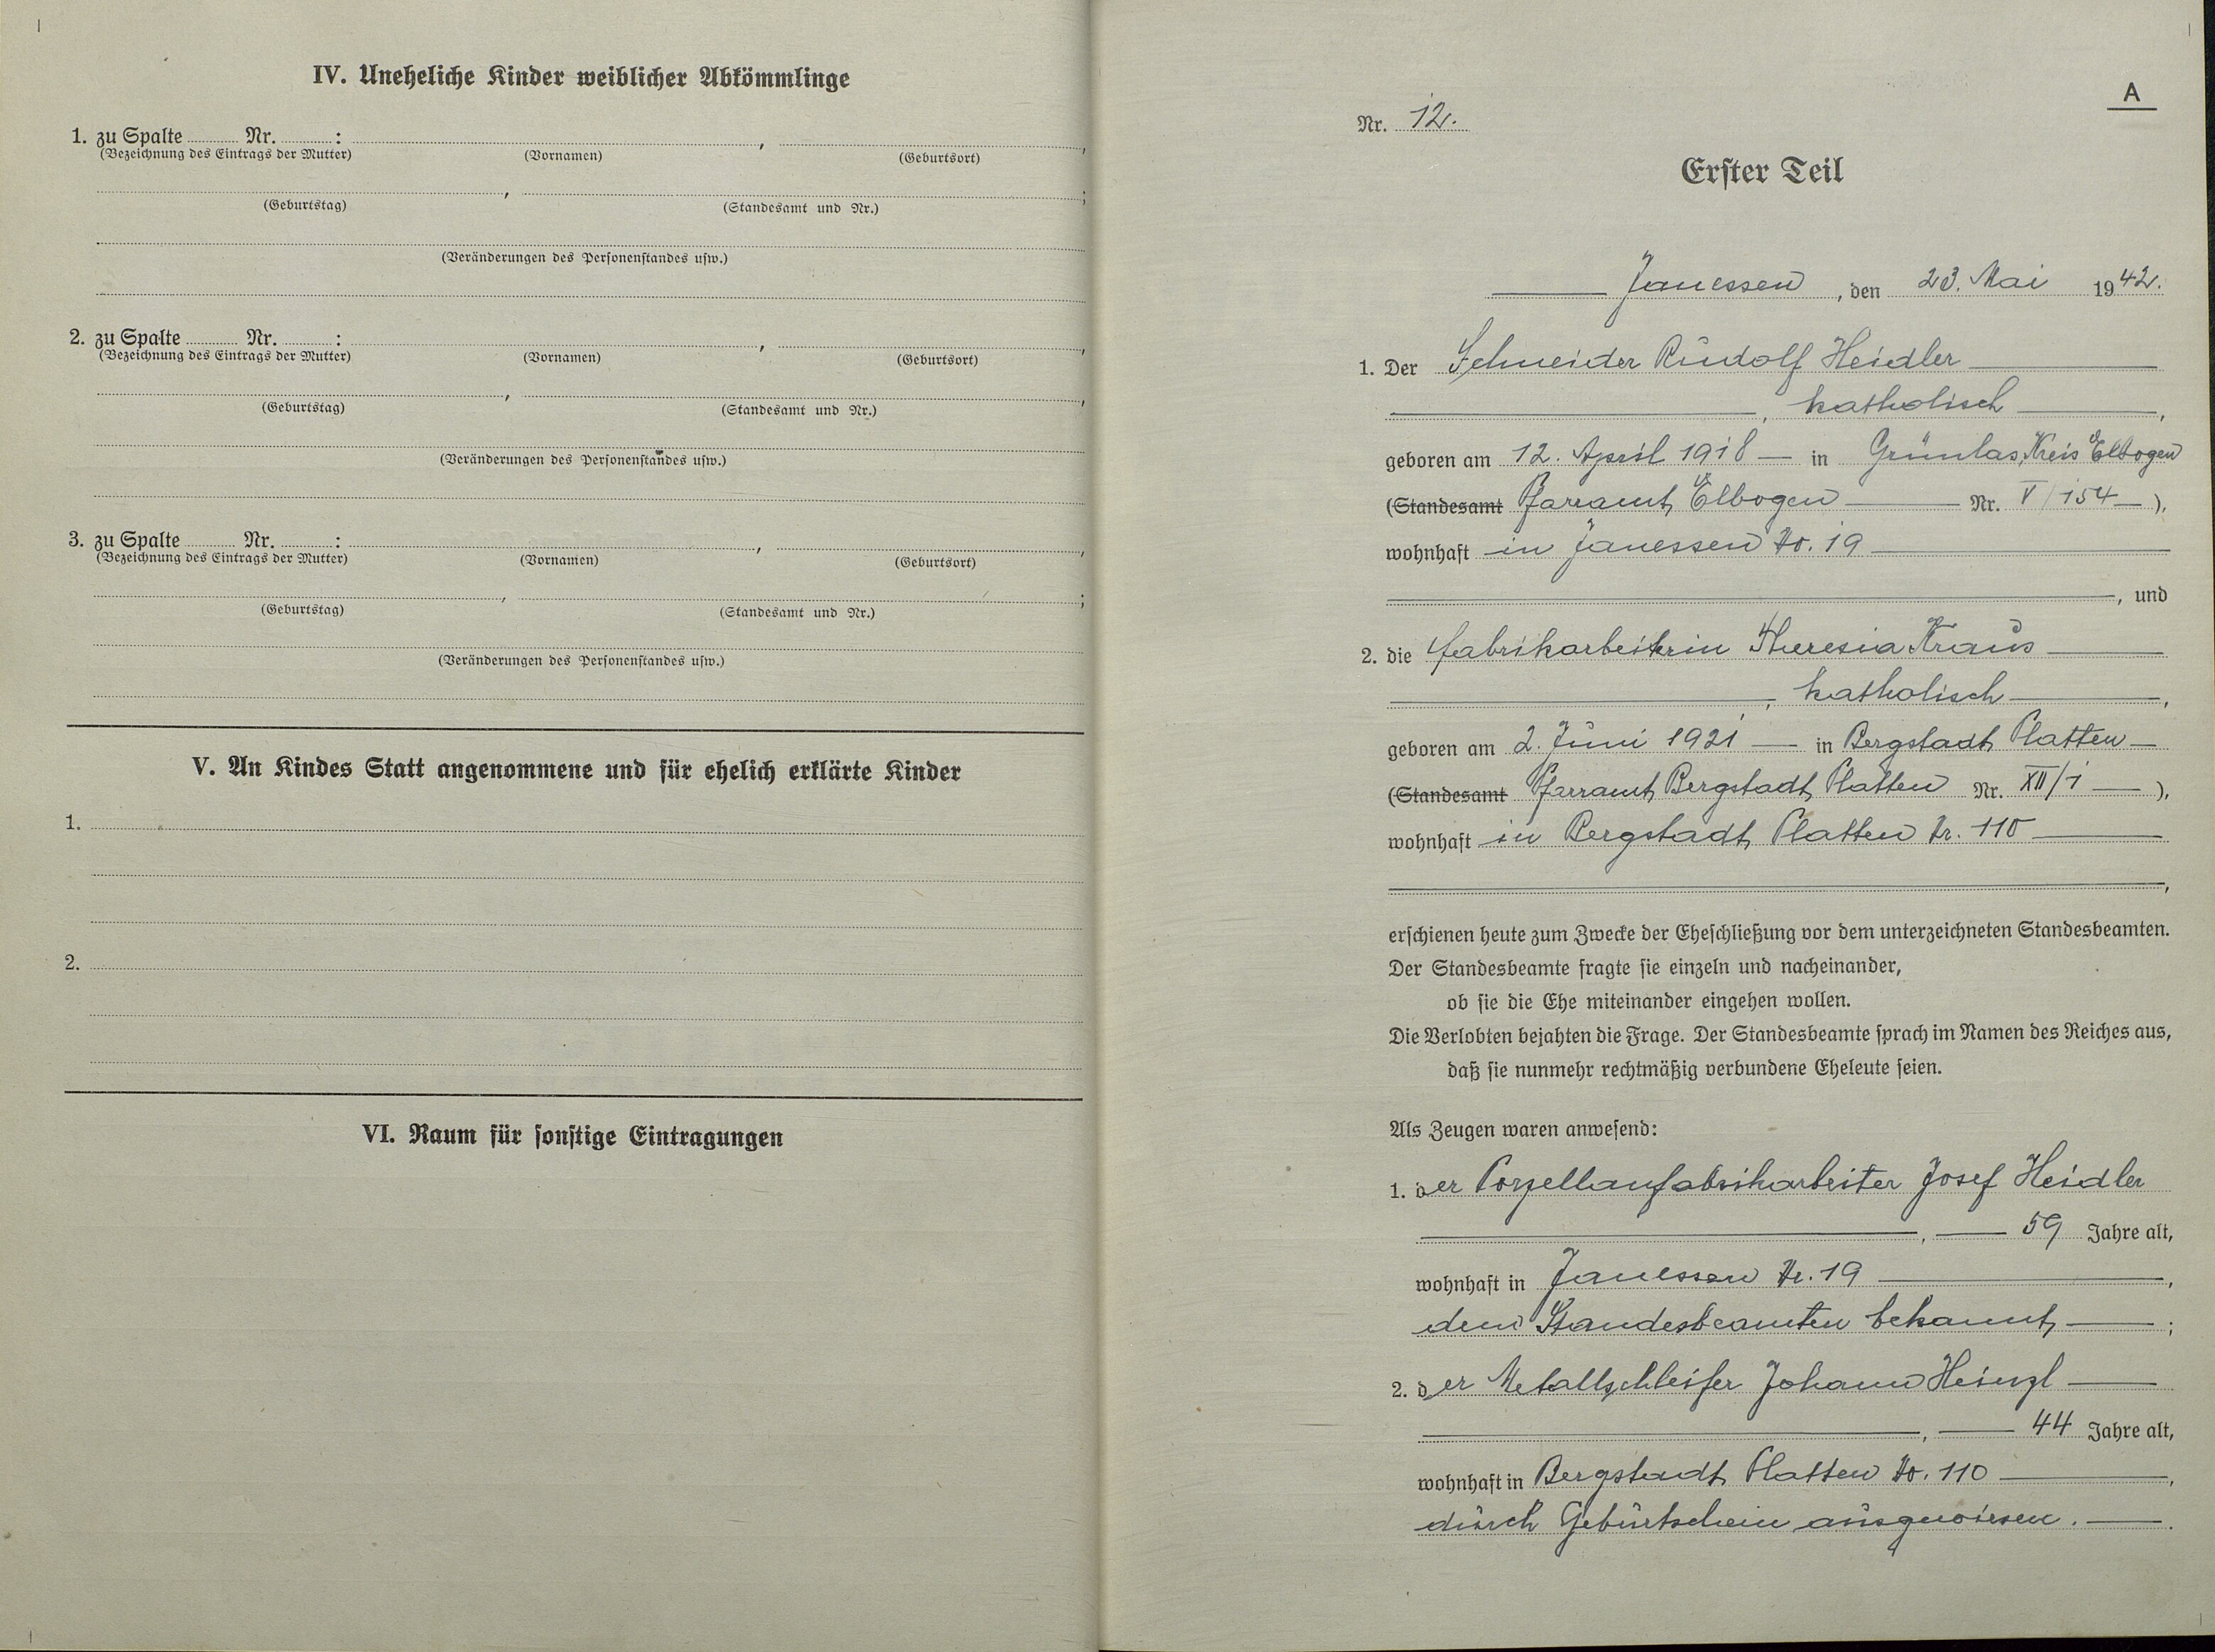 IV. Uneheliche Kinder weiblicher Abkömmlinge
1. zu Spalte ........ Nr. ........ : ........ , ........ ,
(Bezeichnung des Eintrags der Mutter) (Vornamen) (Geburtsort)
........ , ........ ;
(Geburtstag) (Standesamt und Nr.)
(Veränderungen des Personenstandes usw.)
2. zu Spalte ........ Nr. ........ : ........ , ........ ,
(Bezeichnung des Eintrags der Mutter) (Vornamen) (Geburtsort)
........ , ........ ,
(Geburtstag) (Standesamt und Nr.)
(Veränderungen des Personenstandes usw.)
3. zu Spalte ........ Nr. ........ : ........ , ........ ,
(Bezeichnung des Eintrags der Mutter) (Vornamen) (Geburtsort)
........ , ........ ;
(Geburtstag) (Standesamt und Nr.)
(Veränderungen des Personenstandes usw.)
V. An Kindes Statt angenommene und für ehelich erklärte Kinder
1.
2.
VI. Raum für sonstige Eintragungen
A
Nr. 12.
Erster Teil
Janessen, den 23. Mai 1942.
1. Der Schneider Rudolf Heidler
, katholisch ,
geboren am 12. April 1918 in Grünlas, Kreis Elbogen
(Standesamt Pfarramt Elbogen Nr. V/154 ),
wohnhaft in Janessen No. 19
, und
2. die Fabrikarbeiterin Theresia Kraus
, katholisch ,
geboren am 2. Juni 1921 in Bergstadt Platten
(Standesamt Pfarramt Bergstadt Platten Nr. XII/1 ),
wohnhaft in Bergstadt Platten Nr. 110
,
erschienen heute zum Zwecke der Eheschließung vor dem unterzeichneten Standesbeamten.
Der Standesbeamte fragte sie einzeln und nacheinander,
ob sie die Ehe miteinander eingehen wollen.
Die Verlobten bejahten die Frage. Der Standesbeamte sprach im Namen des Reiches aus,
daß sie nunmehr rechtmäßig verbundene Eheleute seien.
Als Zeugen waren anwesend:
1. der Porzellanfabrikarbeiter Josef Heidler
, 59 Jahre alt,
wohnhaft in Janessen Nr. 19 ,
dem Standesbeamten bekannt ;
2. der Metallschleifer Johann Heinzl
, 44 Jahre alt,
wohnhaft in Bergstadt Platten No. 110 ,
durch Geburtschein ausgewiesen.